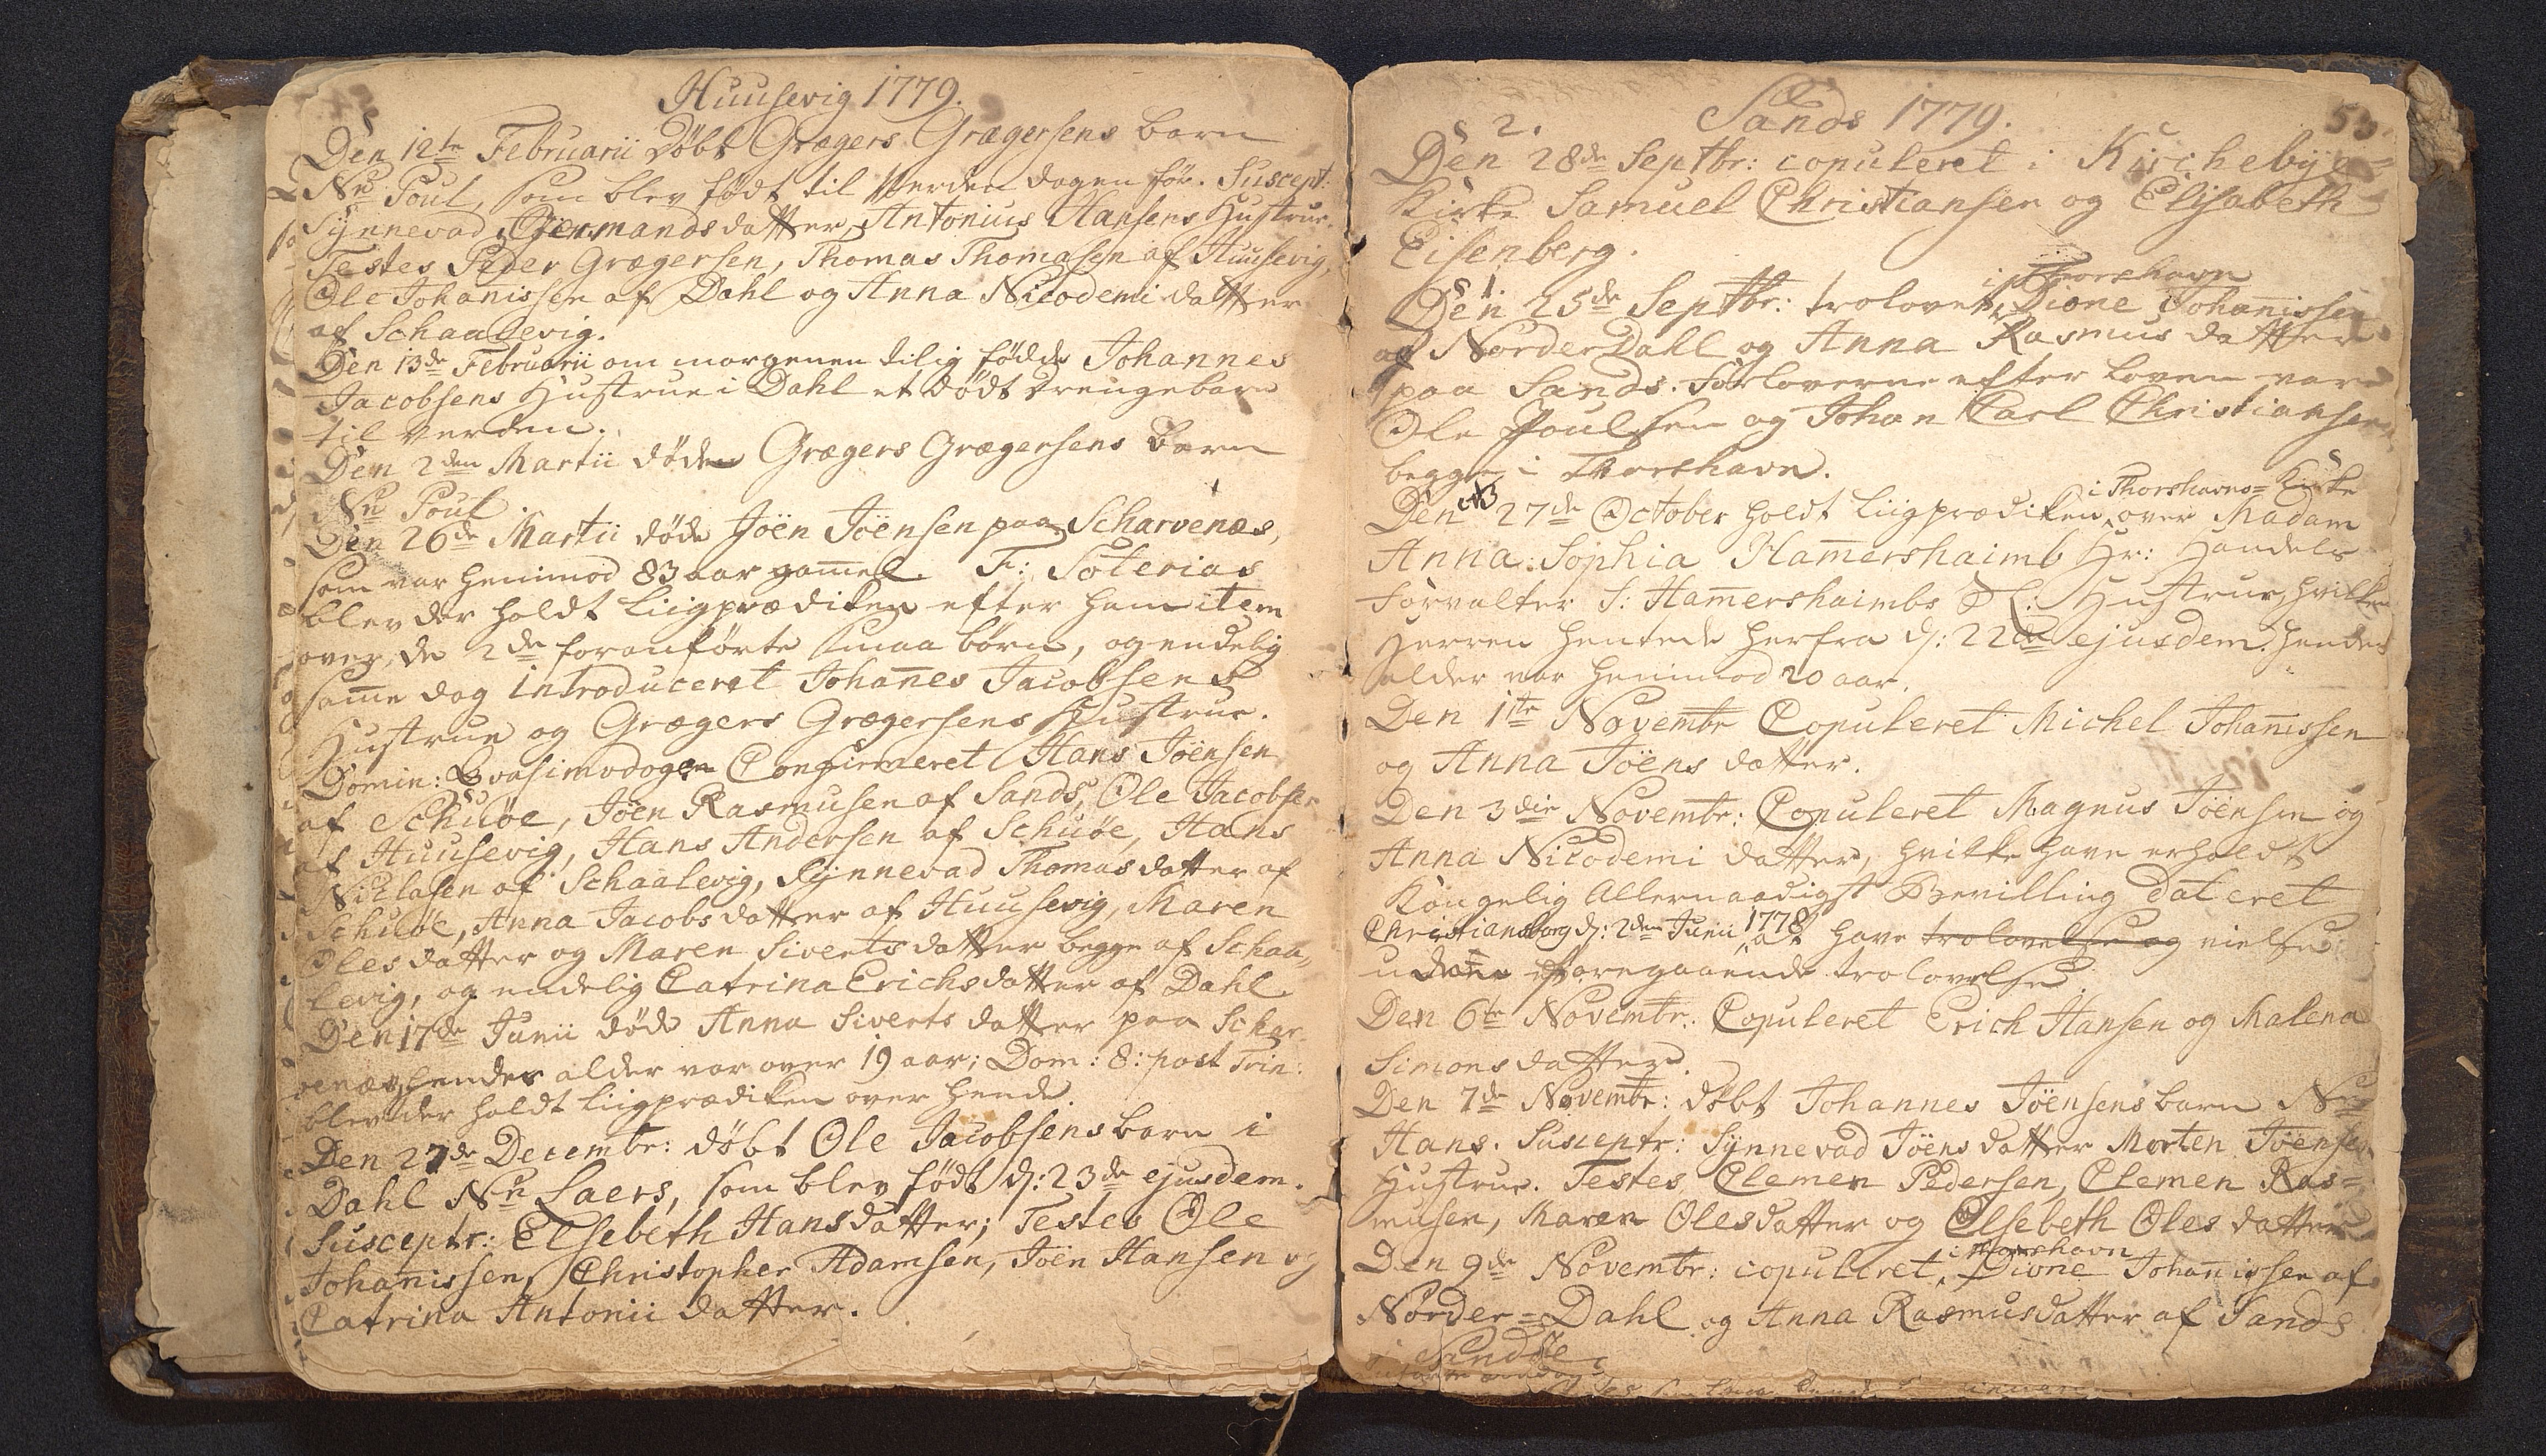 Huusevig 1779.
Den 12te Februarii Døbt Grægers Grægersens barn
Nn Poul, som blev født til Verden dagen før. Suscept:
Synnevad Giermandsdatter, Antonius Hansens Hustrue.
Testes Peder Grægersen, Thomas Thomasen af Huusevig,
Ole Johanissen af Dahl og Anna Nicodemi datter
af Schaalevig.
Den 13de Februarii om morgenen tilig fødde Johannes
Jacobsens Hustrue i Dahl et dødt drengebarn
til verden.
Den 2den Martii døde Grægers Grægersens barn
Nn Poul
Den 26de Martii døde Joën Joënsen paa Scharvenæs,
som var henimod 83 aar gam̄el. F: Solerias
blev der holdt Liigprædiken efter ham item
over de 2de foranførte smaa børn, og endelig
sam̄e dag introduceret Johan̄es Jacobsens
Hustrue og Grægers Grægersens Hustrue.
Domin: Qvasimodogen Confirmeret Hans Joënsen
af Schuøe, Joën Rasmusen af Sands, Ole Jacobsen
af Huusevig, Hans Andersen af Schuøe, Hans
Niclasen af Schaalevig, Synnevad Thomasdatter af
Schuøe, Anna Jacobsdatter af Huusevig, Maren
Olesdatter og Maren Sivertsdatter begge af Schaa,,
levig, og endelig Catrina Erichsdatter af Dahl.
Den 17de Junii døde Anna Siverts datter paa Schar,,
venæs, hendes alder var over 19 aar; Dom: 8: post Trin:
blev der holdt Liigprædiken over hende.
Den 27de Decembr: døbt Ole Jacobsens barn i
Dahl Nn Laers, som blev født d: 23de ejusdem.
Susceptr: Elsebeth Hansdatter; Testes Ole
Johanissen, Christopher Adamsen, Joën Hansen og
Catrina Antonii datter.
Sands 1779.
53
2.
Den 28de Septbr: copuleret i Kirchebye=
Kirke Samuel Christiansen og Elisabeth
Eisenberg.
1.
i Thorshavn
Den 25de Septbr: trolovet, Dione Johanissen
af Norderdahl og Anna Rasmus datter
paa Sands. Forloverne efter Loven var
Ole Poulsen og Johan Carl Christiansen
begge i Thorshavn.
i Thorshavns= Kirke
Den 27de October holdt Liigprædiken, over Madam
Anna Sophia Ham̄ershaimb Hr: Handels
Forvalter S: Ham̄ershaimbs Hustrue, hvilken
Herren hentede herfra d: 22de ejusdem. hendes
alder var henimod 20 aar.
Den 1te Novembr Copuleret Michel Johanissen
og Anna Joëns datter.
Den 3die Novembr: Copuleret Magnus Joënsen og
Anna Nicodemi datter, hvilke have erholdt
Kongelig Allernaadigst Bevilling dateret
Christiansborg d: 2den Junii 1778 at have trolovelse og vielse
uden foregaaende trolovelse.
Den 6te Novembr: Copuleret Erich Hansen og Malena
Simonsdatter.
Den 7de Novembr: døbt Johannes Joënsens barn Nn
Hans. Susceptr: Synnevad Joëns datter Morten Joënsens
Hustrue. Testes Clemen Pedersen, Clemen Ras=
musen, Maren Olesdatter og Elsebeth Oles datter
i Thorshavn
Den 9de Novembr: copuleret, Dione Johanissen af
Norder=Dahl og Anna Rasmusdatter af Sands
Sandøe.